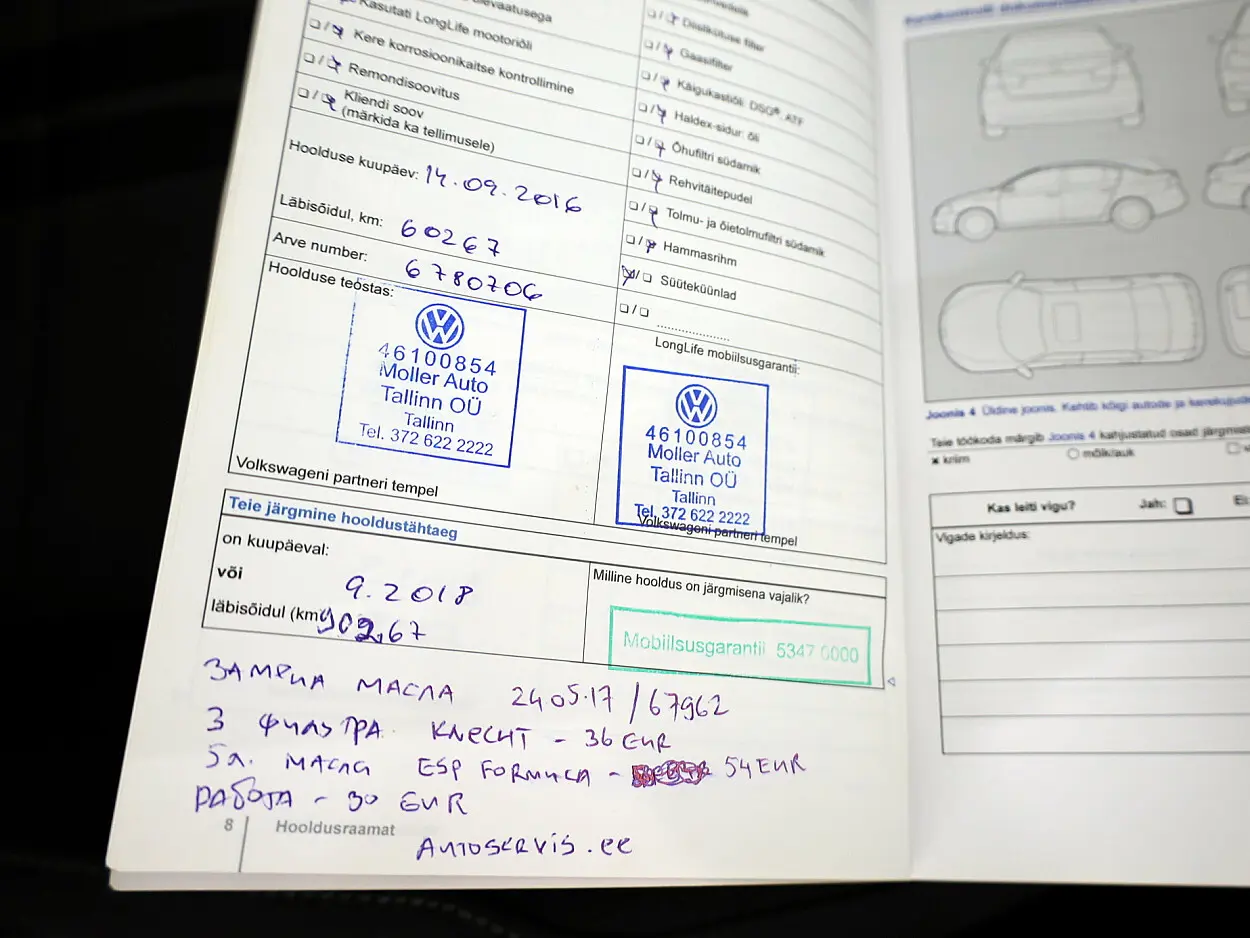 Kasutati LongLife mootoriõli
Kere korrosioonikaitse kontrollimine
Remondisoovitus
Kliendi soov
(märkida ka tellimusele)
Hoolduse kuupäev: 14.09.2016
Läbisõidul, km: 60267
Arve number: 6780706
Hoolduse teostas:
46100854
Moller Auto
Tallinn OÜ
Tallinn
Tel. 372 622 2222
Volkswageni partneri tempel
Diislikütuse filter
Gaasifilter
Käigukastiõli: DSG®, ATF
Haldex-sidur: õli
Õhufiltri südamik
Rehvitäitepudel
Tolmu- ja õietolmufiltri südamik
Hammasrihm
Süüteküünlad
LongLife mobiilsusgarantii:
46100854
Moller Auto
Tallinn OÜ
Tallinn
Tel. 372 622 2222
Volkswageni partneri tempel
Teie järgmine hooldustähtaeg
on kuupäeval:
9.2018
või
läbisõidul (km) 90267
Milline hooldus on järgmisena vajalik?
Mobiilsusgarantii 5347 0000
ЗАМЕНА МАСЛА 24.05.17 / 67962
3 ФИЛЬТРА KNECHT - 36 EUR
5л. МАСЛА ESP FORMULA - 54 EUR
РАБОТА - 30 EUR
AUTOSERVIS.ee
8 Hooldusraamat
Joonis 4 Üldine joonis. Kehtib kõigi autode ja
Teie töökoda märgib Joonis 4 kahjustatud osad
kriim mõlk/auk
Kas leiti vigu? Jah: Ei
Vigade kirjeldus: